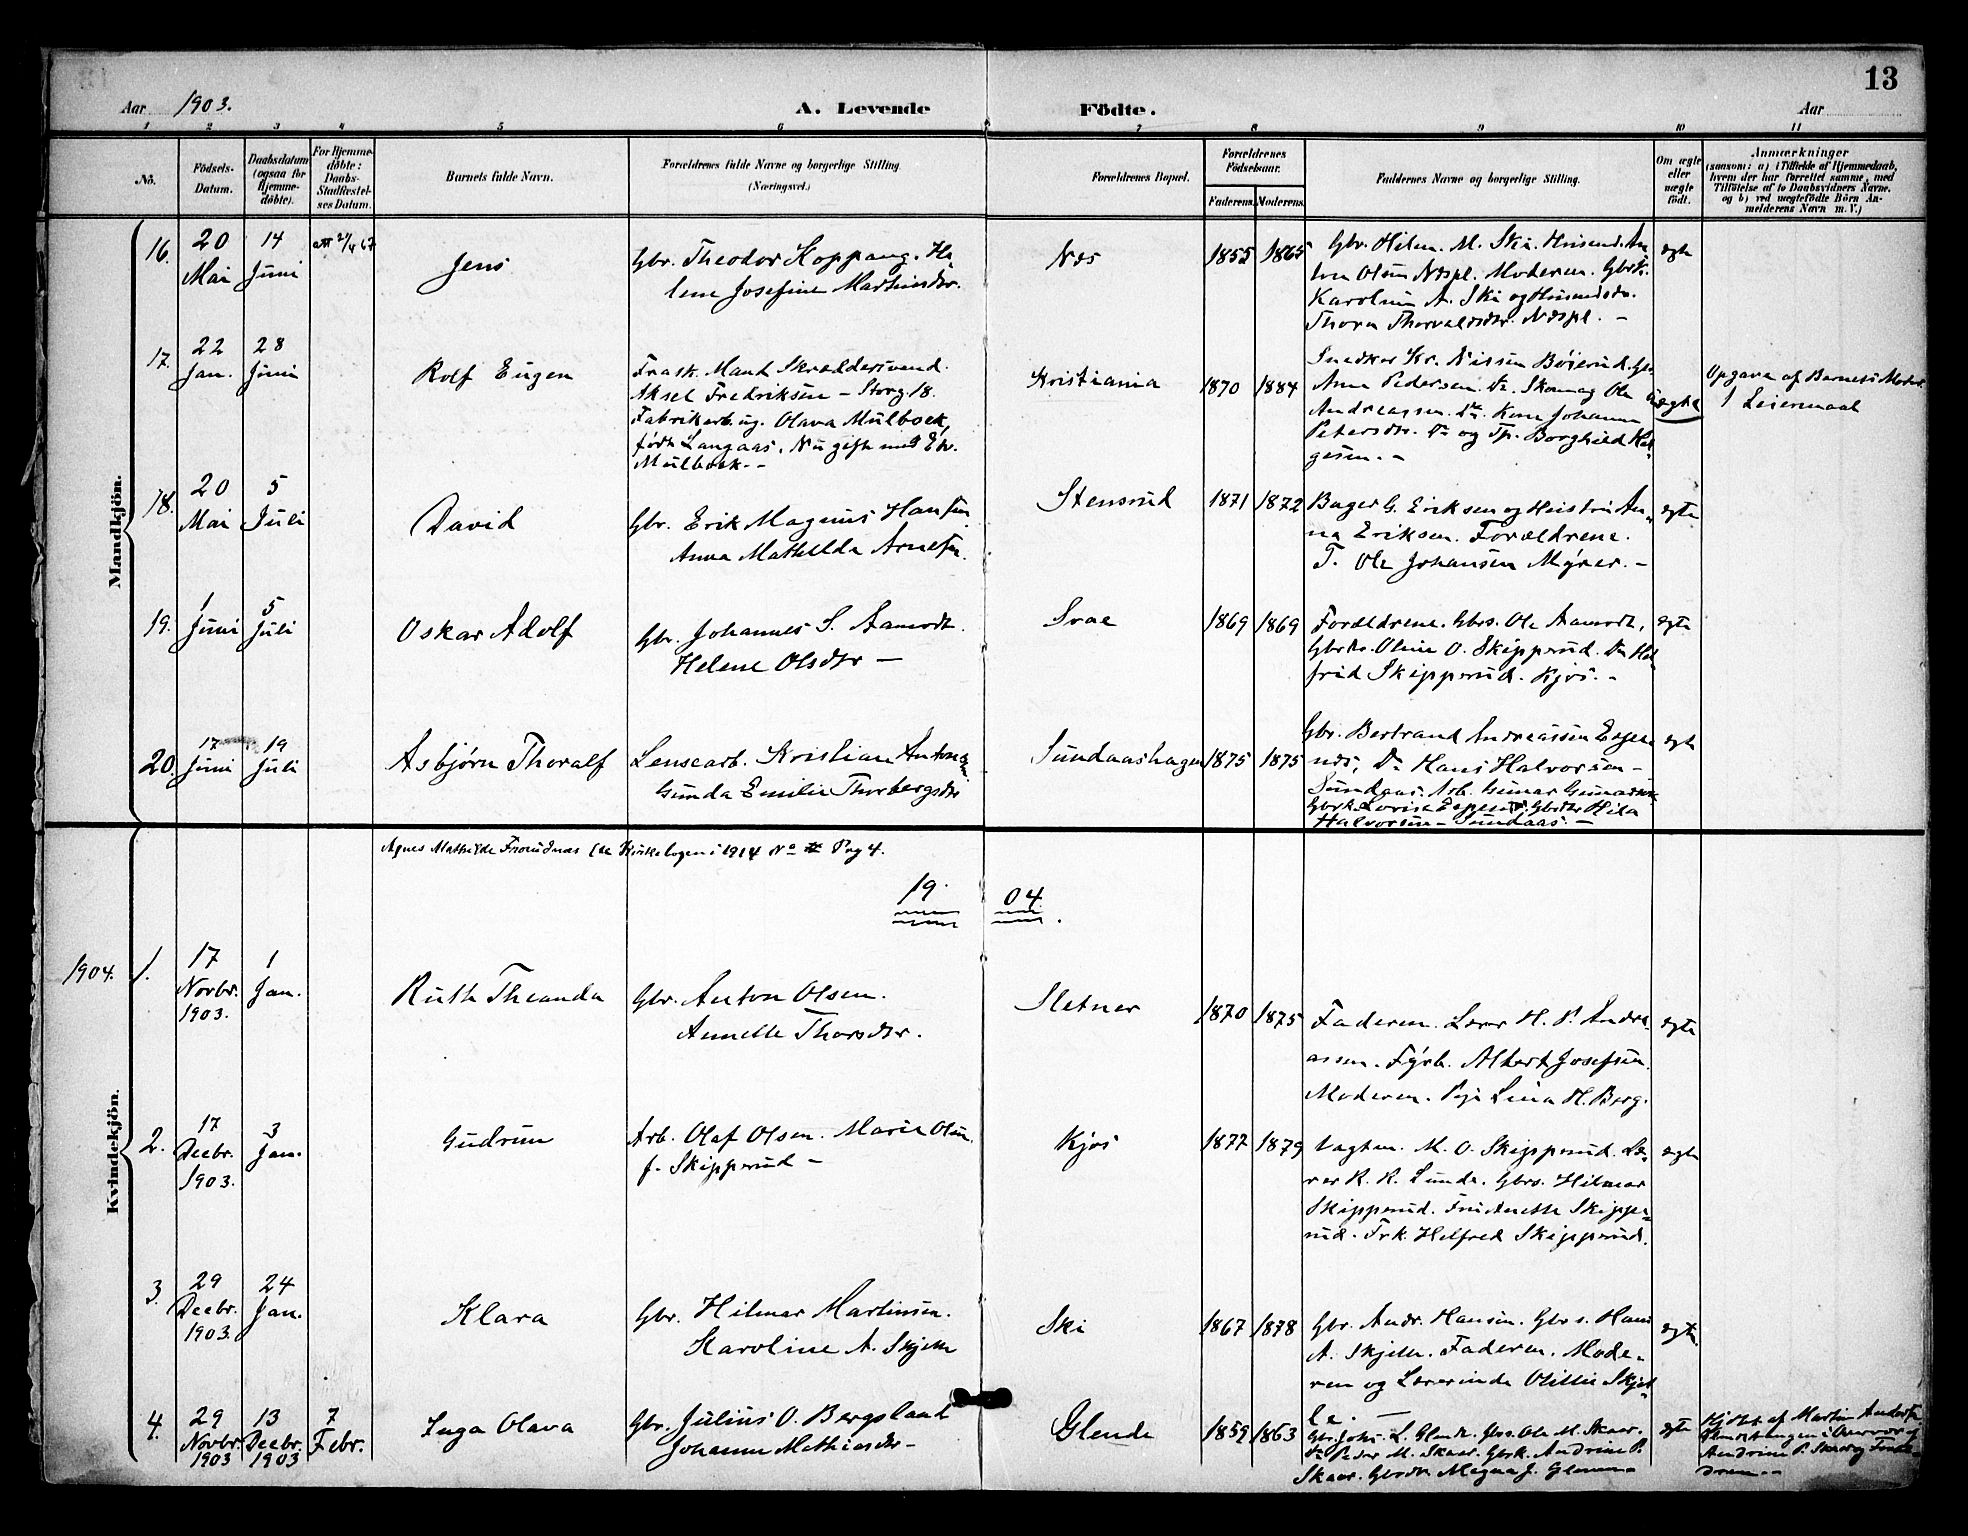 13
Aar 1903. A. Levende Födte. Aar
1 2 3 4 5 6 7 8 9 10 11
No. Födsels-Datum. Daabsdatum (ogsaa for Hjemmedøbte). For Hjemmedøbte: Daabs-Stadfestelses Datum. Barnets fulde Navn. Forældrenes fulde Navne og borgerlige Stilling. (Næringsvei.) Forældrenes Bopæl. Forældrenes Födselsaar. Faderens. Moderens. Faddernes Navne og borgerlige Stilling. Om ægte eller uægte født. Anmærkninger (saasom: a) i Tilfælde af Hjemmedaab, hvem der har forrettet samme, med Tilføielse af to Daabsvidners Navne, og b) ved uægtefödte Börn Anmelderens Navn m. V.)
Mandkjön.
16. 20 Mai 14 Juni
Jens
Gbr. Theodor Koppang. He
lene Josefine Martinsdtr.
Næs
1855 1865
Gbr. Hilm. M. Ski.
Olsen Næspl. Moderen.
Karoline A. Ski og
Thora Thorvaldsdtr. Næspl. –
egte
17. 22 Jan. 28 Juni
Rolf Eugen
Frask. Mand Skræddersvend.
Aksel Fredriksen – Storg. 18.
Fabrikarb. ug. Olava Mulbæk,
født Langaas. Nu gift med
Mulbæk. –
Kristiania
1870 1884
Snedker Kr. Nilsen Bøierud.
Anna Pedersen. Do. Skomag Ole
Andreassen. Do. Kone Johanne
Petersdtr. Do og Tp. Borghild Hel-
gesen. –
uægte
Opgave af Barnets Moder
1 Leiermaal
18. 20 Mai 5 Juli
David
Gbr. Erik Magnus Hansen
Anna Mathilda Arnesen.
Stensrud
1871 1872
Bager G. Eriksen og Hustru An-
na Eriksen. Forældrene.
T. Ole Johansen Myrer. –
egte
19. 1 Juni 5 Juli
Oskar Adolf
Gbr. Johannes S. Aamodt.
Helene Olsdtr –
Svae
1869 1869
Forældrene. Gbrs. Ole Aamodt,
Oline O. Skipperud. Do Hel
frid Skipperud. Kjos. –
egte
20. 17 Juni 19 Juli
Asbjørn Thoralf
Lensearb. Kristian Antons
Gunda Emilie Thorbergsdtr
Sundaashagen
1875 1875
Gbr. Bertrand Andreassen Espe
næs, Do Hans Halvorsen –
Sundaas. Arb. Gunar
Lovise Hilda
Halvorsen – Sundaas. –
egte
Agnes Mathilde Frorudnæs (se Kirkebogen i 1914 No Pag 4.
19 04.
Kvindekjön.
1904. 1. 17 Novbr. 1903. 1 Jan.
Ruth Theanda
Gbr. Anton Olsen.
Annette Thorsdtr.
Sletner
1870 1875
Faderen. Lærer H. P. Andre-
assen. Fyrb. Albert Josefsen.
Moderen. Pige Lina H. Berg.
egte
2. 17 Decbr. 1903. 3 Jan.
Gudrun
Arb. Olaf Olsen. Marie Olsen
f. Skipperud –
Kjos
1877 1879
Vagtm. M. O. Skipperud. Læ-
rer R. R. Lunde. Gbrs. Hilmar
Skipperud. Fru Anette Skippe-
rud. Frk. Helfred Skipperud.
egte
3. 29 Decbr. 1903. 24 Jan.
Klara
Gbr. Hilmar Martinsen.
Karoline A. Skjelle
Ski
1867 1878
Gbr. Andr. Hansen. Gbrs. Hans
A. Skjelle. Faderen. Mode-
ren og Lærerinde Otillie Skjel
le. –
egte.
4. 29 Novbr. 1903 13 Decbr. 1903 7 Febr.
Inga Olava
Gbr. Julius O. Bergsland
Johanne Mathiesdtr –
Glende
1859 1863
Gbr. Johs. L. Glende. Gbrs. Ole M. Skaar.
Do Peder M. Skaar. Gbrk. Andrine P.
Skaar. Magna J. Glende –
egte
Hjdbt. af Martin
i Overvær af
Andrine P. Skaar og Foræl-
drene –